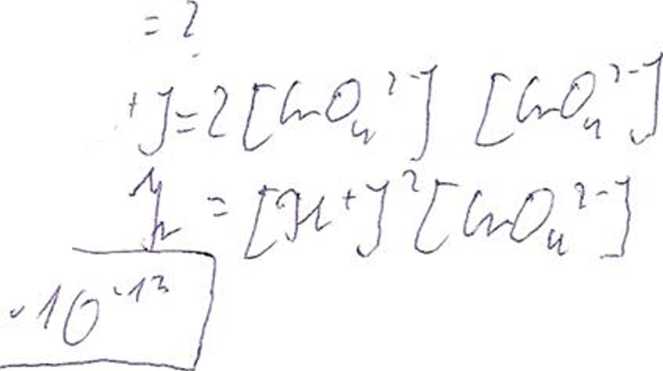 = 2
+] = 2 [CrO₄²⁻] [CrO₄²⁻]
= [M⁺]² [CrO₄²⁻]
·10⁻¹³